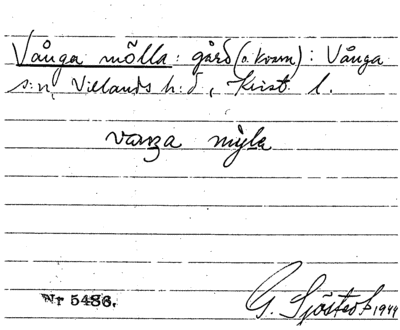 Vånga mölla: gård (o. kvarn): Vånga
s:n, Villands h:d, Krist. l.
vanza myla
Nr 5486.
G. Sjöstedt 1944